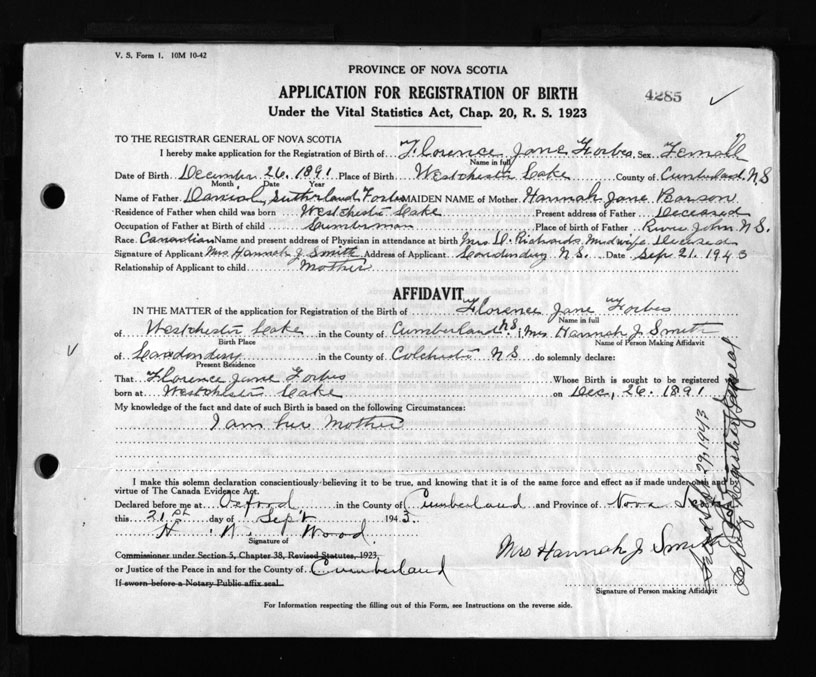 V. S. Form 1. 10M 10-42
PROVINCE OF NOVA SCOTIA
APPLICATION FOR REGISTRATION OF BIRTH
4285
Under the Vital Statistics Act, Chap. 20, R. S. 1923
TO THE REGISTRAR GENERAL OF NOVA SCOTIA
I hereby make application for the Registration of Birth of Florence Jane Forbes. Sex Femall
Name in full
Date of Birth December 26. 1891 Place of Birth Westchester Lake County of Cumberland N.S
Month Date Year
Name of Father Daniel Sutherland Forbes MAIDEN NAME of Mother Hannah Jane Pearson
Residence of Father when child was born Westchester Lake Present address of Father Deceased
Occupation of Father at Birth of child Lumberman Place of birth of Father River John N.S.
Race Canadian Name and present address of Physician in attendance at birth Mrs D. Richards Midwife Deceased
Signature of Applicant Mrs Hannah J Smith Address of Applicant Londonderry N.S. Date Sep 21. 1943
Relationship of Applicant to child Mother
AFFIDAVIT
IN THE MATTER of the application for Registration of the Birth of Florence Jane Forbes
Name in full
of Westchester Lake in the County of Cumberland N.S; Mrs Hannah J. Smith
Birth Place Name of Person Making Affidavit
of Londonderry in the County of Colchester N.S. do solemnly declare:
Present Residence
That Florence Jane Forbes Whose Birth is sought to be registered
born at Westchester Lake on Dec, 26. 1891
My knowledge of the fact and date of such Birth is based on the following Circumstances:
I am her Mother
I make this solemn declaration conscientiously believing it to be true, and knowing that it is of the same force and effect as if made under oath and
virtue of The Canada Evidence Act.
Declared before me at Oxford in the County of Cumberland and Province of Nova
this 21st day of Sept 1943.
H. Wood
Signature of
Mrs Hannah J. Smith
Commissioner under Section 5, Chapter 38, Revised Statutes, 1923,
or Justice of the Peace in and for the County of Cumberland
If sworn before a Notary Public affix seal.
Signature of Person making Affidavit
For Information respecting the filling out of this Form, see Instructions on the reverse side.
Sept 29, 1943
Deputy Registrar General